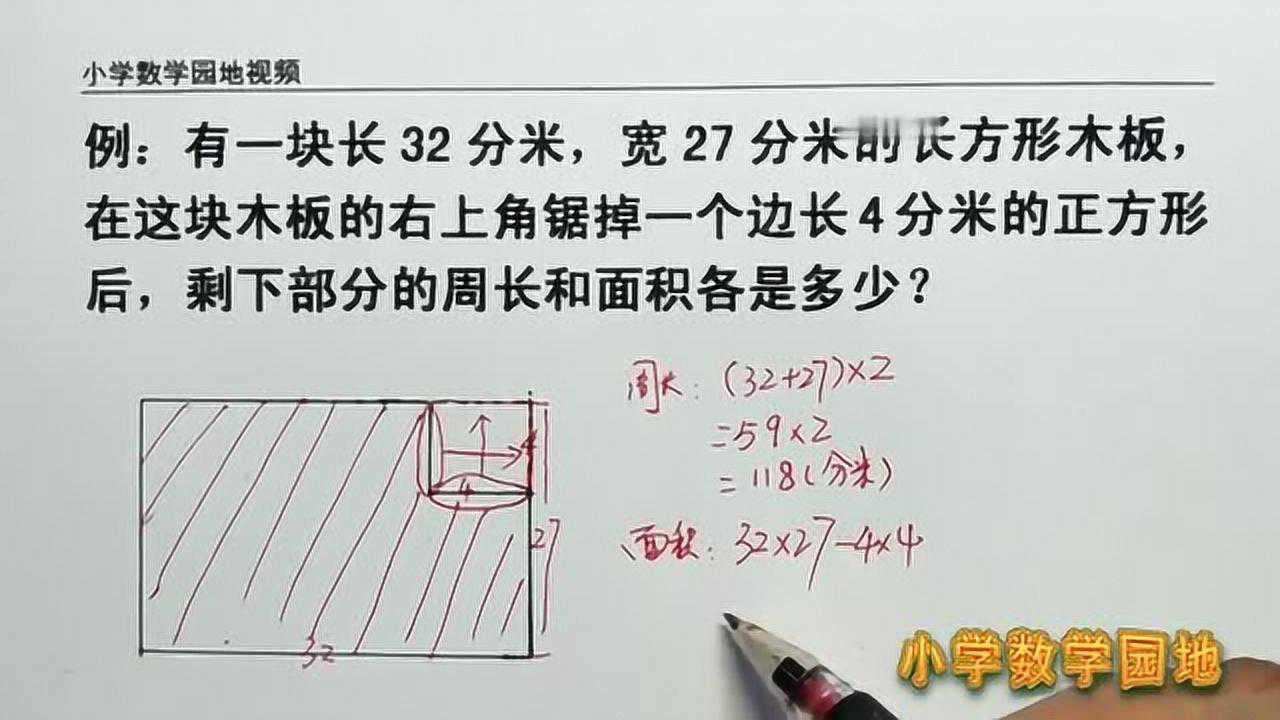 小学数学园地视频
例：有一块长 32 分米，宽 27 分米的长方形木板，
在这块木板的右上角锯掉一个边长4分米的正方形
后，剩下部分的周长和面积各是多少？
周长：(32+27)×2
=59×2
=118(分米)
4
4
27
面积：32×27-4×4
32
小学数学园地